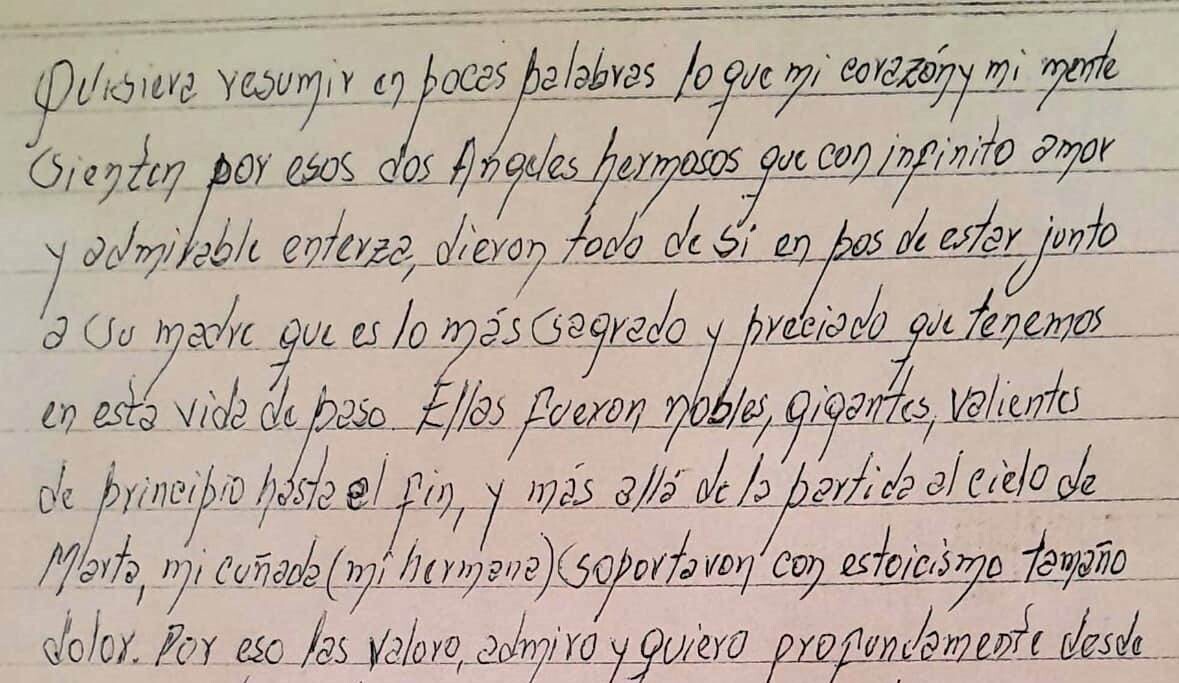 Quisiera resumir en pocas palabras lo que mi corazón y mi mente
sienten por esos dos Angeles hermosos que con infinito amor
y admirable entereza, dieron todo de sí en pos de estar junto
a su madre que es lo más sagrado y preciado que tenemos
en esta vida de paso. Ellas fueron nobles, gigantes, valientes
de principio hasta el fin, y más allá de la partida al cielo de
Marta, mi cuñada (mi hermana) soportaron con estoicismo tamaño
dolor. Por eso las valoro, admiro y quiero profundamente desde